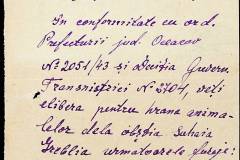 In conformitate cu ord.
Prefecturii jud. Oceacov
No 2051/43 și Decizia Guvern.
Transnistriei No 2701, veți
elibera pentru hrana anima-
lelor dela obștia Suhaia
Greblia următoarele furaje: